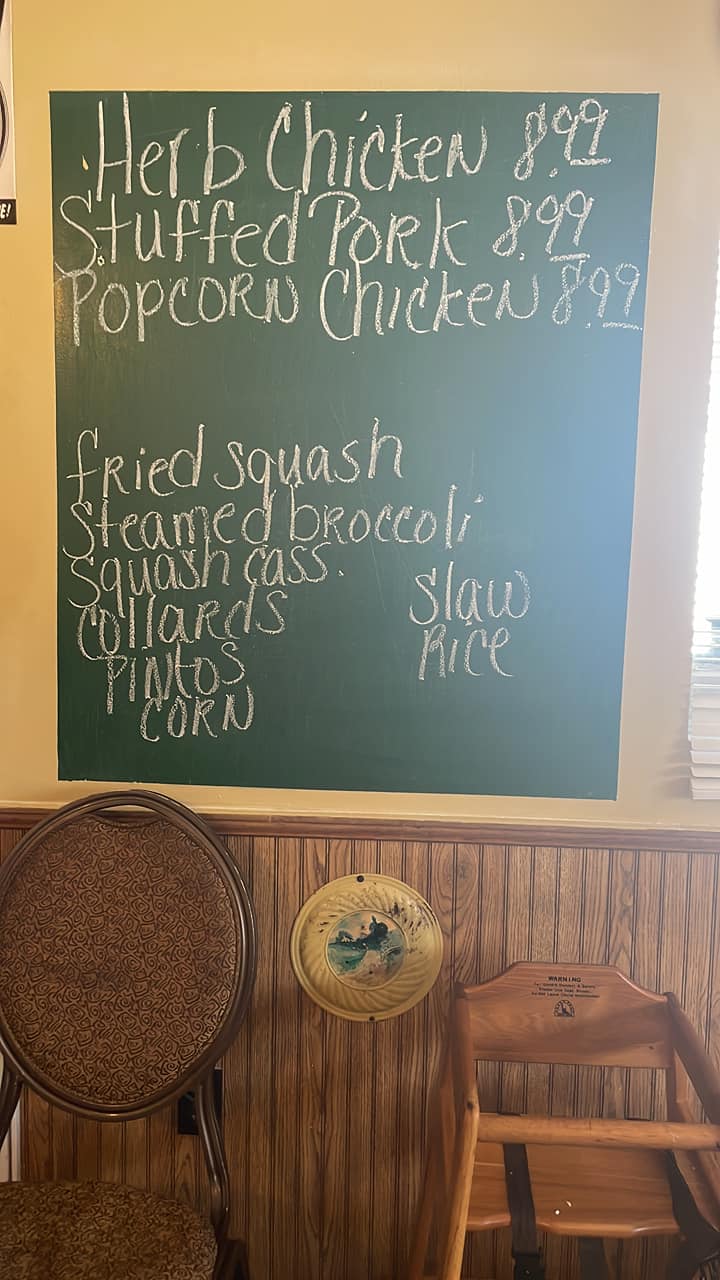 Herb Chicken 8.99
Stuffed Pork 8.99
Popcorn Chicken 8.99
fried squash
Steamed broccoli
Squash cass.
Collards
Pintos
Corn
Slaw
Rice
E!
WARNING